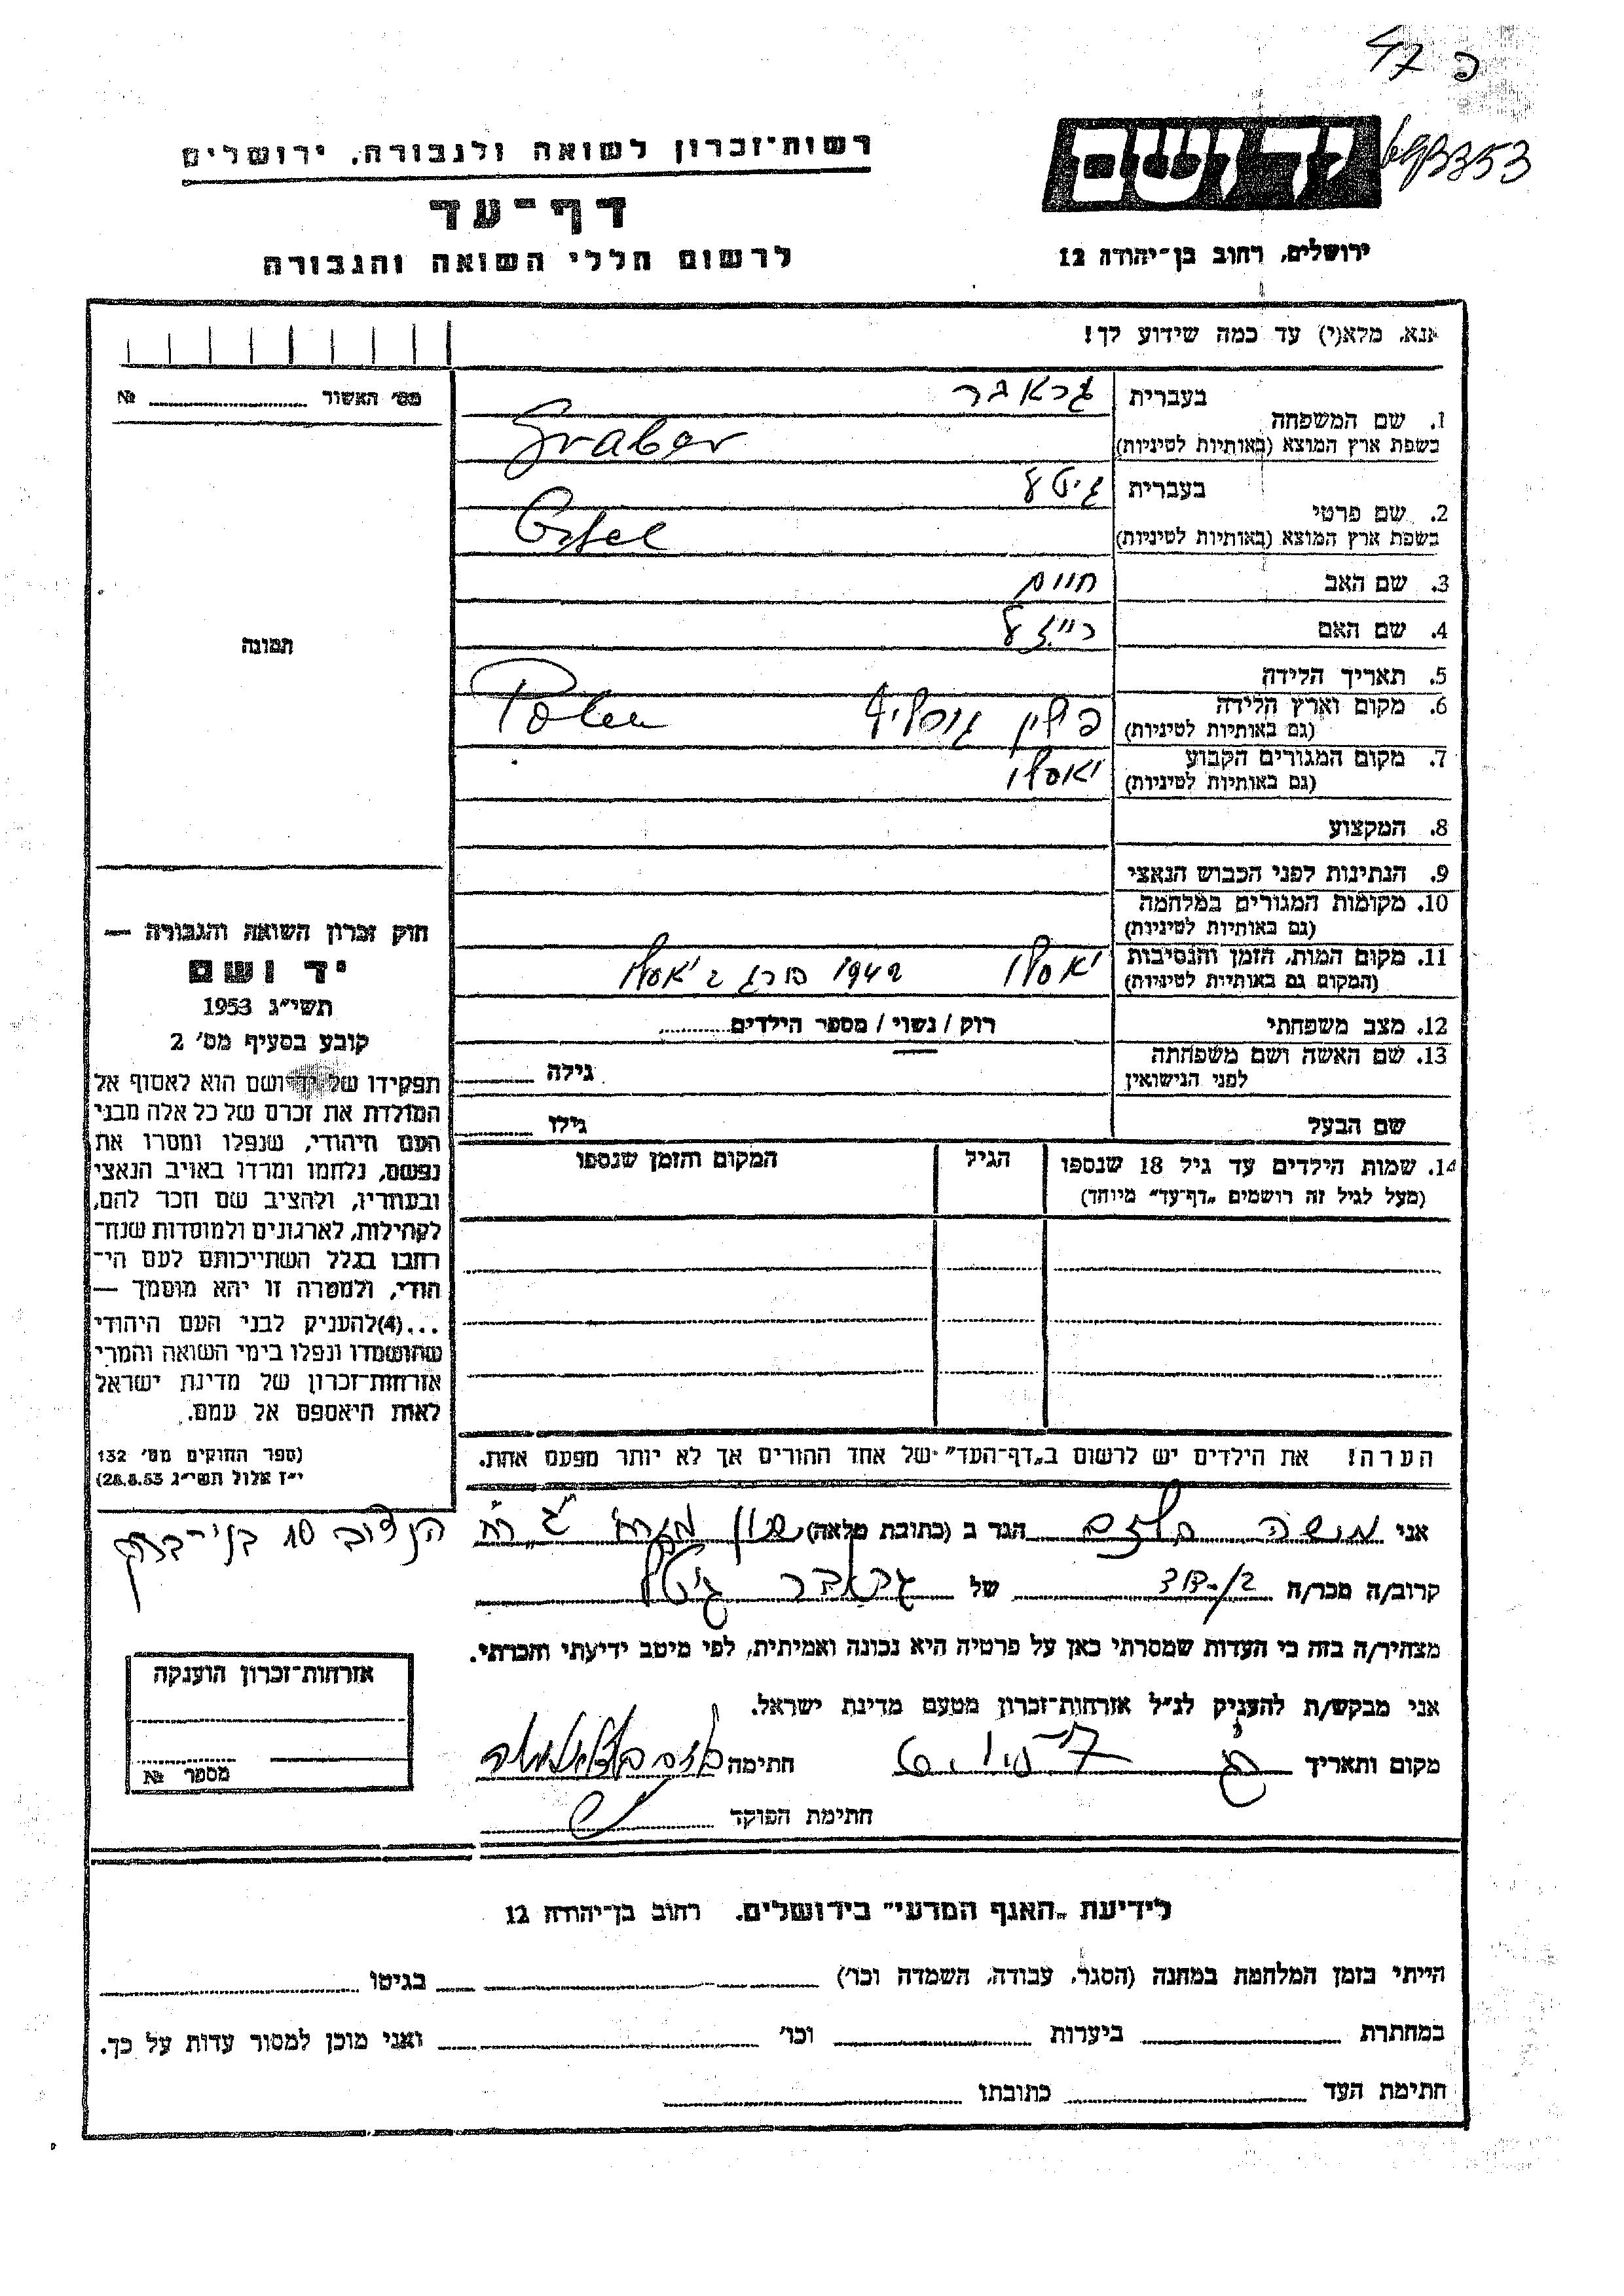 פ 47
רשות־זכרון לשואה ולגבורה, ירושלים
דף־עד
לרשום חללי השואה והגבורה
יד ושם
ירושלים, רחוב בן־יהודה 12
אנא, מלא(י) עד כמה שידוע לך!
מס׳ האשור № 
1. שם המשפחה
בעברית גראבר
בשפת ארץ המוצא (באותיות לטיניות) Graber
2. שם פרטי
בעברית גיטל
בשפת ארץ המוצא (באותיות לטיניות)
3. שם האב חיים
4. שם האם רייזל
5. תאריך הלידה
6. מקום וארץ הלידה
(גם באותיות לטיניות) פולין Polen
7. מקום המגורים הקבוע
(גם באותיות לטיניות) יאסלו
8. המקצוע
9. הנתינות לפני הכבוש הנאצי
10. מקומות המגורים במלחמה
(גם באותיות לטיניות)
11. מקום המות, הזמן והנסיבות
(המקום גם באותיות לטיניות) יאסלו 1942 ביאסלו
12. מצב משפחתי רוק / נשוי / מספר הילדים
13. שם האשה ושם משפחתה
לפני הנישואין גילה
שם הבעל גילו
14. שמות הילדים עד גיל 18 שנספו הגיל המקום והזמן שנספו
(מעל לגיל זה רושמים „דף־עד” מיוחד)
הערה! את הילדים יש לרשום ב„דף־העד” של אחד ההורים אך לא יותר מפעם אחת.
תמונה
חוק זכרון השואה והגבורה —
יד ושם
תשי״ג 1953
קובע בסעיף מס׳ 2
תפקידו של יד־ושם הוא לאסוף אל
המולדת את זכרם של כל אלה מבני
העם היהודי, שנפלו ומסרו את
נפשם, נלחמו ומרדו באויב הנאצי
ובעוזריו, ולהציב שם וזכר להם,
לקהילות, לארגונים ולמוסדות שנח־
רחבו בגלל השתייכותם לעם הי־
הודי, ולמטרה זו יהא מוסמך —
...(4)להעניק לבני העם היהודי
שהושמדו ונפלו בימי השואה והמרי
אזרחות־זכרון של מדינת ישראל
לאות היאספם אל עמם.
(ספר החוקים מס׳ 132
י״ז אלול תשי״ג 28.8.53)
אני משה הגר ב (כתובת מלאה) 10 בני־ברק
קרוב/ה מכר/ה בן-דוד של גראבר גיטל
מצהיר/ה בזה כי העדות שמסרתי כאן על פרטיה היא נכונה ואמיתית, לפי מיטב ידיעתי והכרתי.
אני מבקש/ת להעניק לנ״ל אזרחות־זכרון מטעם מדינת ישראל.
מקום ותאריך חתימה
חתימת הפוקד
אזרחות־זכרון הוענקה
מספר №
לידיעת „האגף המדעי” בירושלים. רחוב בן־יהודה 12
הייתי בזמן המלחמה במחנה (הסגר, עבודה, השמדה וכו׳) בגיטו
במחתרת ביערות וכו׳ ואני מוכן למסור עדות על כך.
חתימת העד כתובתו